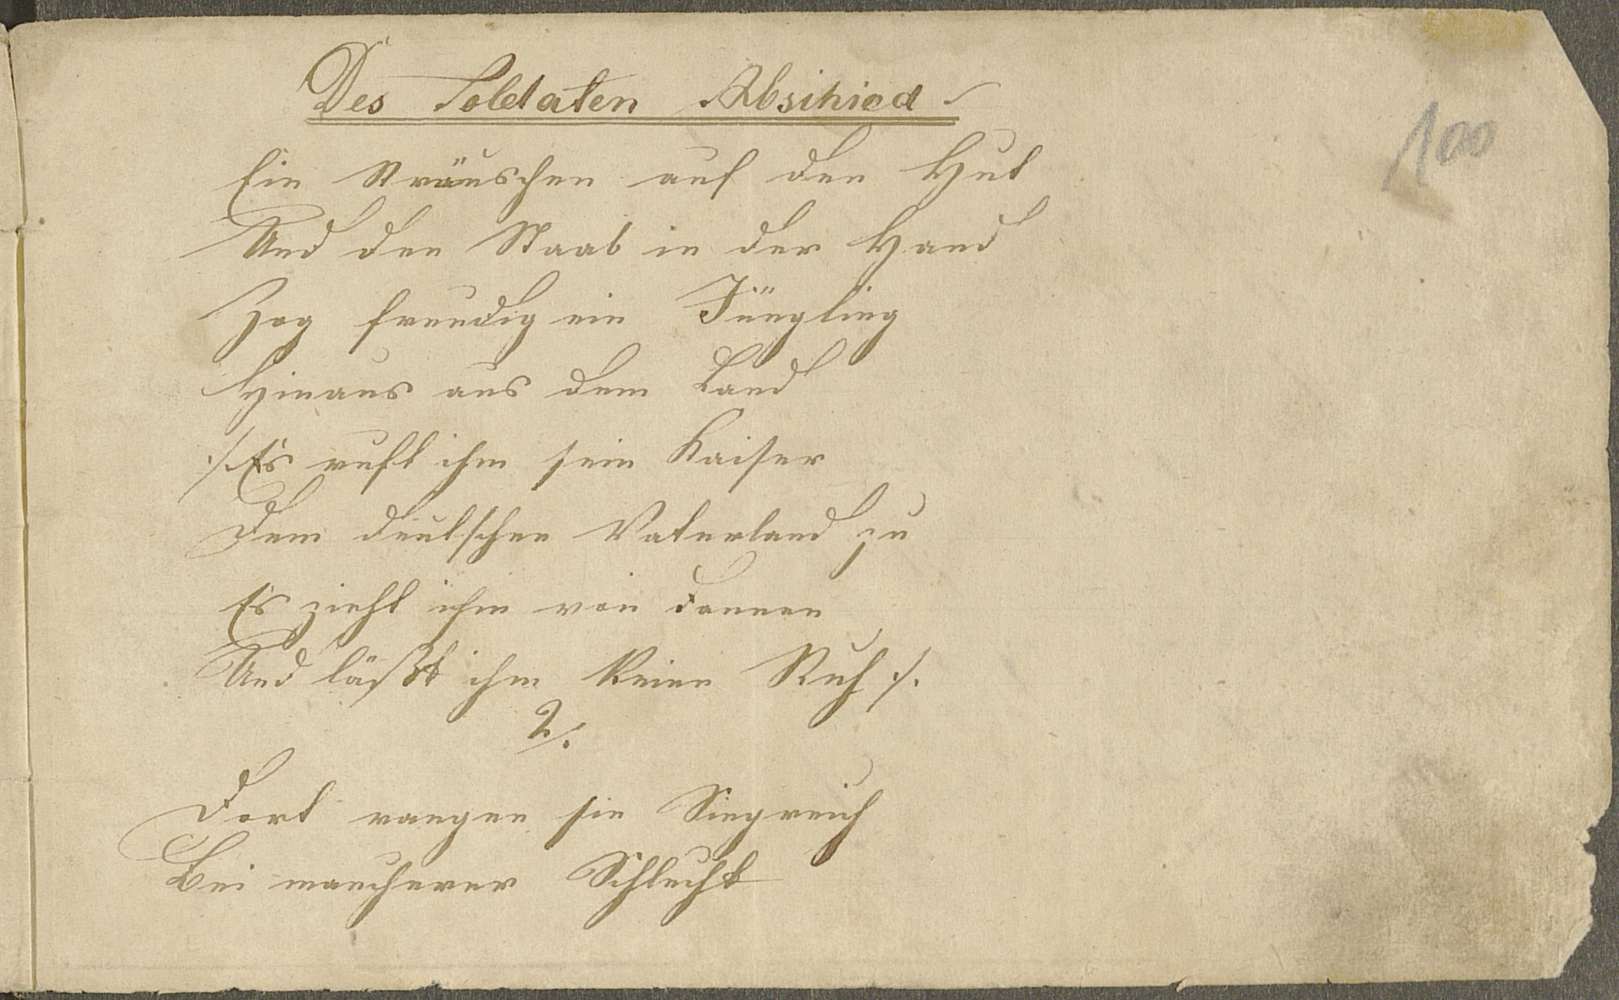 Des Soldaten Absihied
100
Ein Sträuschen auf den Hut
Und den Staab in der Hand
Zog freudig ein Jüngling
Hinaus aus dem Land
:/: Es ruft ihm sein Kaiser
Dem deutschen Vaterland zu
Es zieht ihm von dannen
Und läßt ihm keine Ruh :/:
2/.
Dort rangen sie Siegreich
Bei mancherer Schlacht